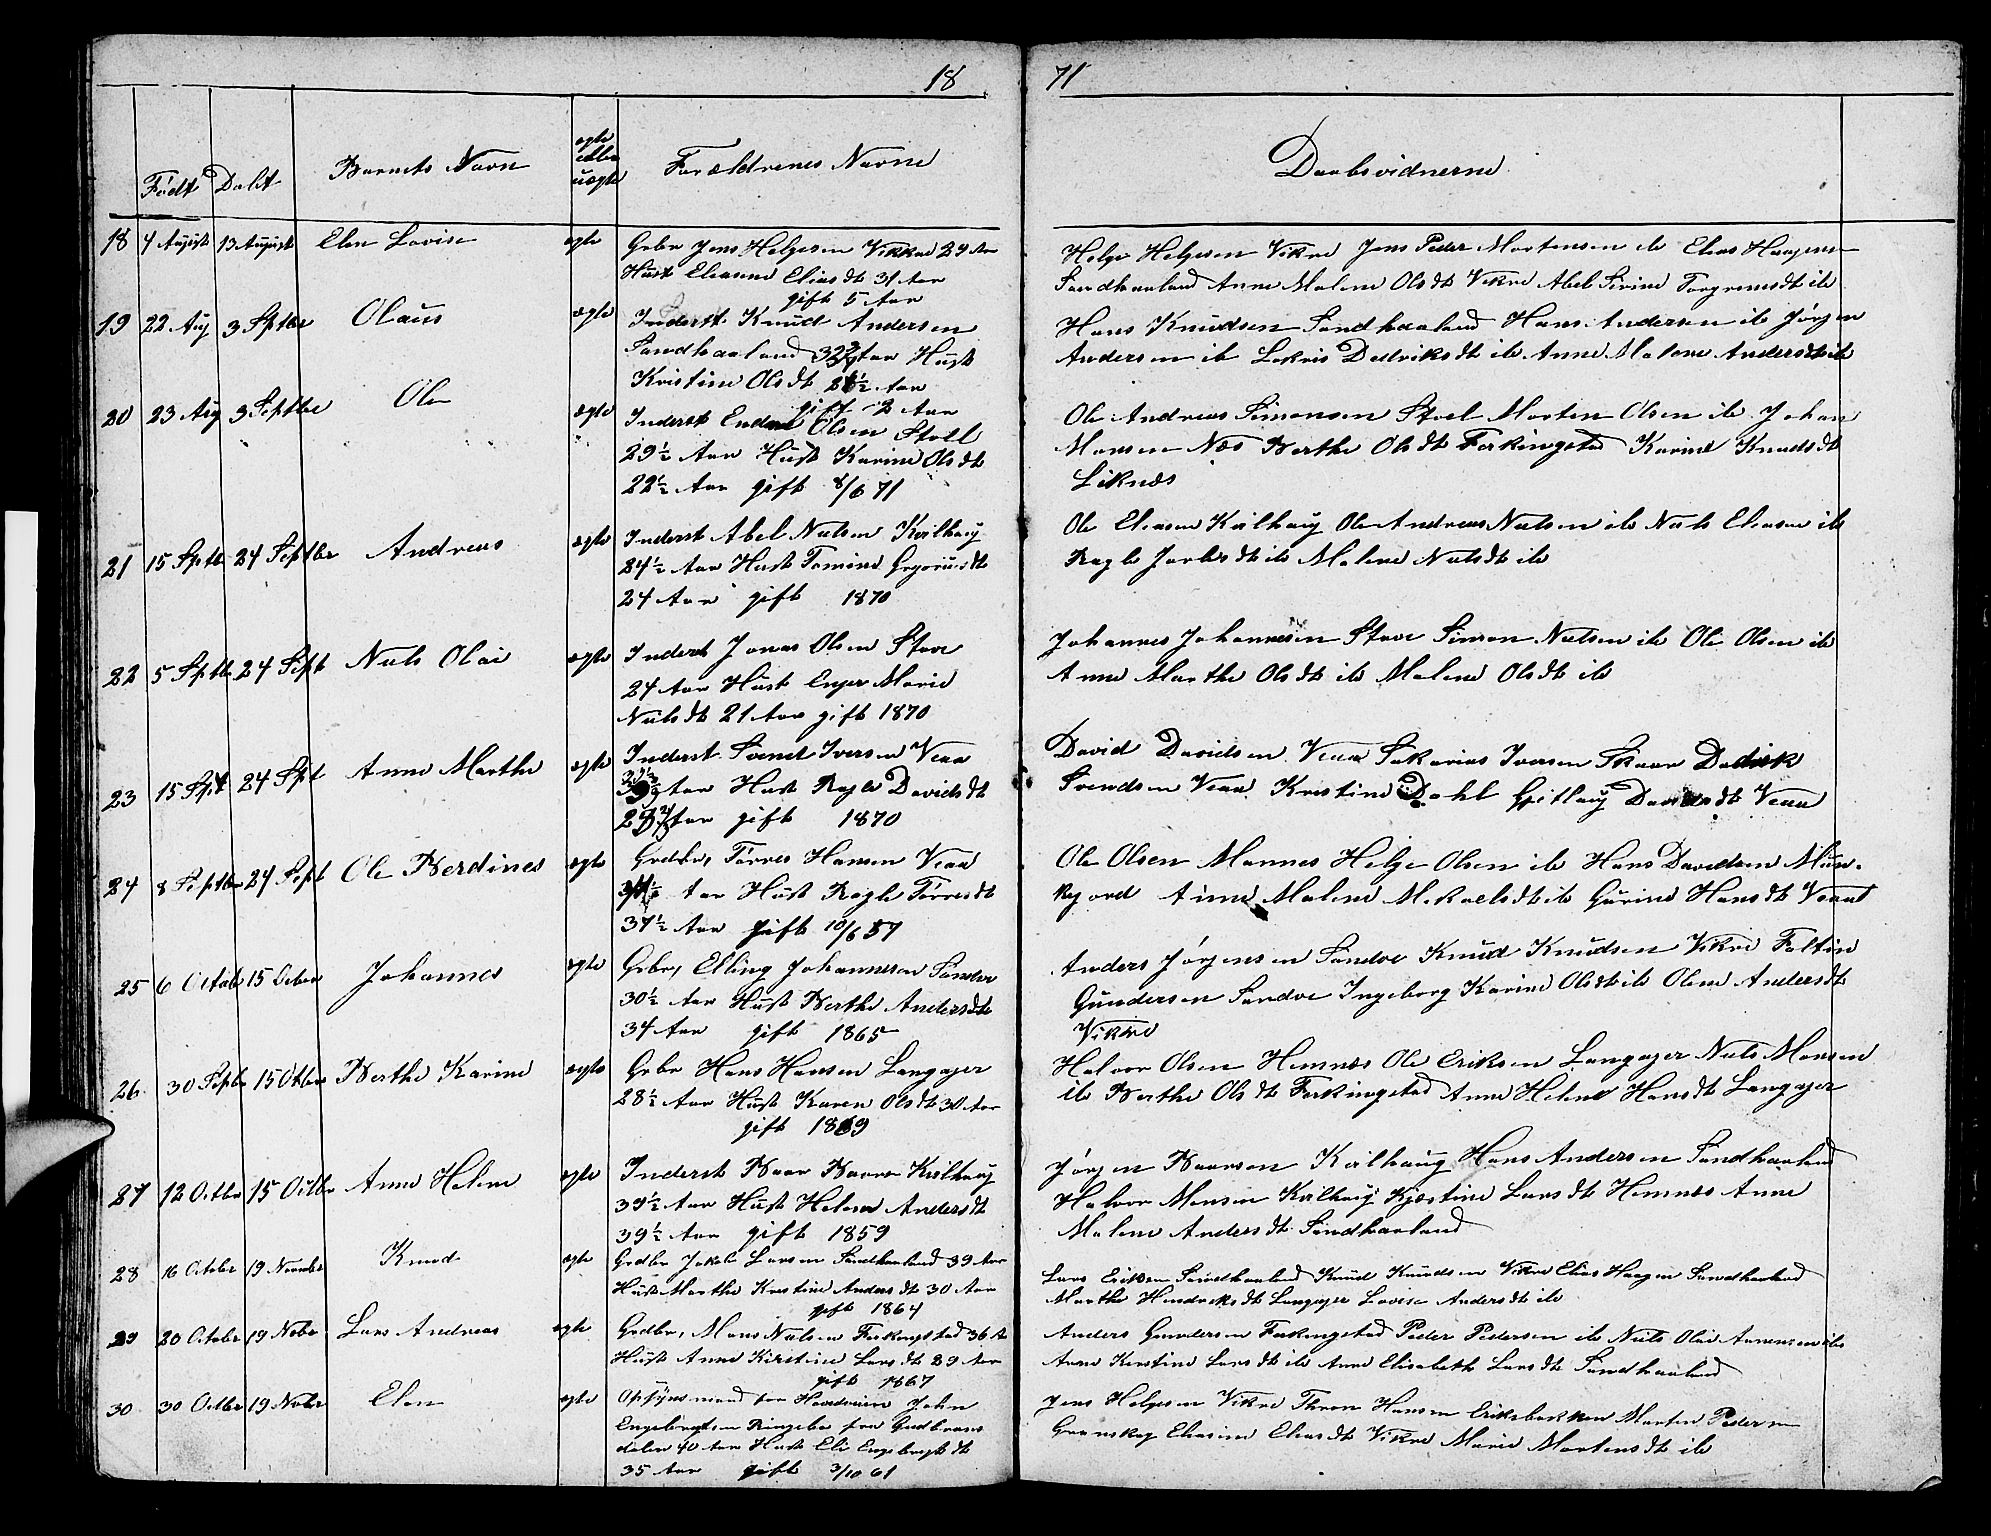 18 71
Født Døbt Barnets Navn ægte eller uægte Forældrenes Navne Daabsvidnerne
18 4 August 13 August Elen Lovise ægte Grbr Jens Helgesen Vikre 29 Aar
Hust Eleanne Eliasdt 31 Aar
gift 5 Aar
Helge Helgesen Vikre Jens Peder Mortensen ib Elias Haagens
Sandhaaland Anne Malene Olsdt Vikre Abel Serine Torgrimsdt ib
19 22 Aug 3 Septbr Olaus ægte Inderst Knud Andersen
Sandhaaland Aar Hust
Kristine Olsdt Aar
gift 2 Aar
Hans Knudsen Sandhaaland Hans Andersen ib Jørgen
Andersen ib Dedriksdt ib Anne Malene Andersdt ib
20 23 Aug 3 Septbr Ole ægte Inderst Endre Olsen Stoll
29½ Aar Hust Karine Olsdt
22½ Aar gift 8/6 71
Ole Andreas Simonsen Stoel Morten Olsen ib Johan
Monsen Næs Berthe Olsdt Ferkingstad Karine Knudsdt
Liknes
21 15 Septbr 24 Septbr Andreas ægte Inderst Abel Nielsen Kvilhaug
24½ Aar Hust Tomine Gregoriusdt
24 Aar gift 1870
Ole Eliasen Kvilhaug Ole Andreas Nielsen ib Niels Eliasen ib
Ragle Jacobsdt ib Malene Nielsdt ib
22 5 Septbr 24 Sept Niels Olai ægte Inderst Jonas Olsen Stave
24 Aar Hust Enger Marie
Nielsdt 21 Aar gift 1870
Johannes Johannesen Stave Simon Nielsen ib Ole Olsen ib
Anne Marthe Olsdt ib Malene Olsdt ib
23 15 Sept 24 Spt Anne Marthe ægte Inderst Svend Iversen Veaa
Aar Hust Ragle Davidsdt
Aar gift 1870
David Davidsen Veaa Sakarias Iversen Skaar Dedrik
Svendsen Veaa Kristine Dahl Gjitlaug Davidsdt Veaa
24 8 Septbr 24 Sept Ole Berdines ægte Grdbr, Tørres Hansen Veaa
Aar Hust Ragle Tørresdt
37½ Aar gift 10/6 57
Ole Olsen Mannes Helge Olsen ib Hans Davidsen Mun-
kejord Anne Malene Mikaelsdt ib Gurine Hansdt Veaa
25 6 Octob 15 Octbr Johannes ægte Grbr, Elling Johannesen Sandve
30½ Aar Hust Berthe Andersdt
34 Aar gift 1865
Anders Jørgensen Sandve Knud Knudsen Vikre Faltin
Gundersen Sandve Ingeborg Karine Olsdt ib Olene Andersdt
Vikre
26 30 Septbr 15 Octbr Berthe Karine ægte Grbr Hans Hansen Langager
28½ Aar Hust Karen Olsdt 30 Aar
gift 1869
Halvor Olsen Hemnæs Ole Eriksen Langager Niels Monsen
ib Berthe Olsdt Ferkingstad Anne Helene Hansdt Langager
27 12 Octbr 15 Octbr Anne Helene ægte Inderst Baar Kvilhaug
39½ Aar Hust Helene Andersdt
39½ Aar gift 1859
Jørgen Baarsen Kvilhaug Hans Andersen Sandhaaland
Halvor Monsen Kvilhaug Kjestine Larsdt Hemnæs Anne
Malene Andersdt Sandhaaland
28 16 October 19 November Knud ægte Grdbr Jakob Larsen Sandhaaland 39 Aar
Hust Marthe Kristine Andersdt 30 Aar
gift 1864
Lars Eriksen Sandhaaland Knud Knudsen Vikre Elias Haagen Sandhaaland
Marthe Hendriksdt Langager Lovise Andersdt ib
29 20 October 19 Novbr Lars Andreas ægte Grdbr, Mons Nielsen Ferkingstad 36 A
Hust Anne Kirstine Larsdt 29 Aar
gift 1867
Anders Gundersen Ferkingstad Peder Pedersen ib Niels Olai ib
Anne Kirstine Larsdt ib Anne Elisabeth Larsdt Sandhaaland
30 30 Octbr 19 Novbr Elen ægte Opsynsmand for Havedrivn John
Engebregtsen Ringebo fra Gudbrans
dalen 40 Aar Hust Eli Engebregtdt
35 Aar gift 3/10 61
Jens Helgesen Vikre Thron Hansen Eriksbakken Morten Pedersen
Grønskag Eliasine Eliasdt Vikre Marie Mortensdt ib